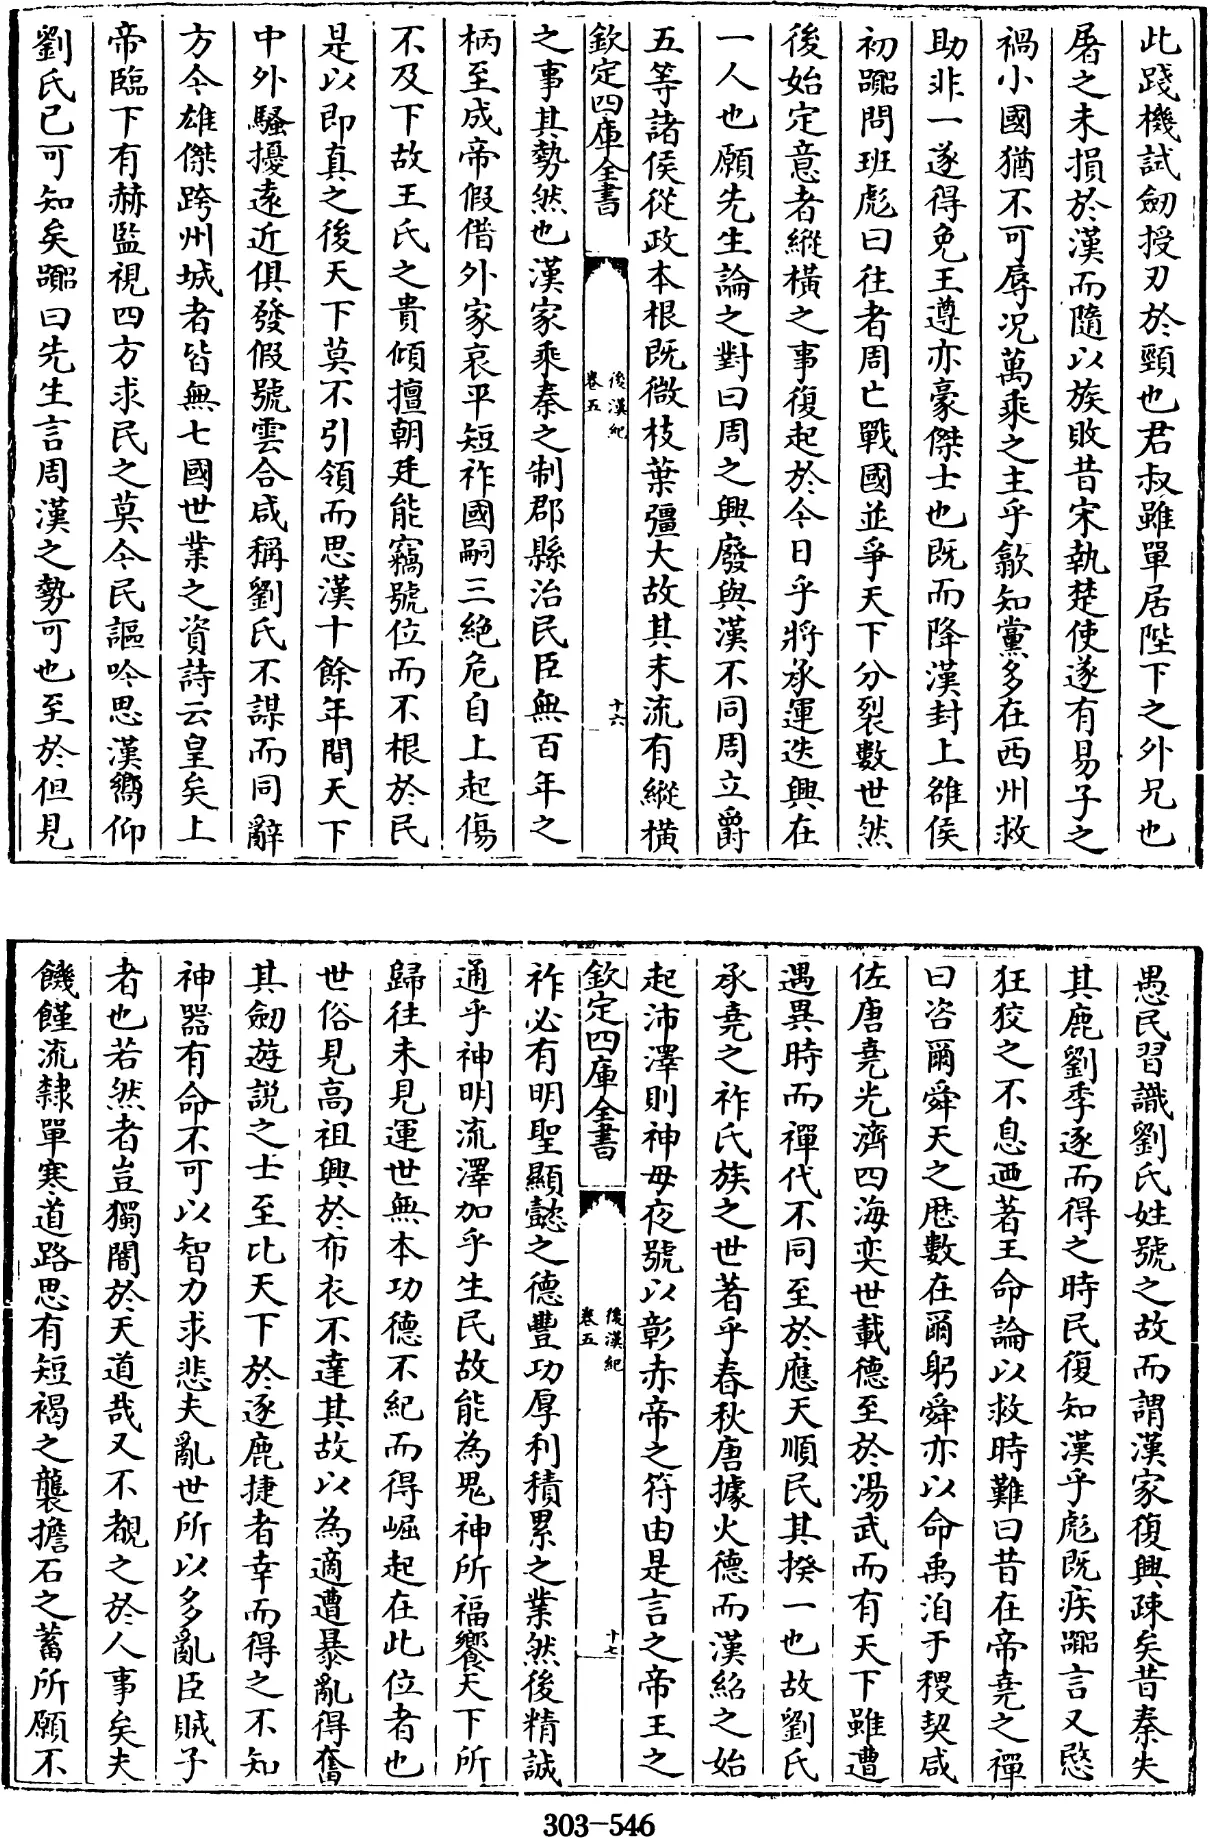 此踐機試劒授刃於頸也君叔雖單居陛下之外兄也
屠之未損於漢而隨以族敗昔宋執楚使遂有易子之
禍小國猶不可辱况萬乘之主乎歙知黨多在西州救
助非一遂得免王遵亦豪傑士也既而降漢封上雒侯
初嚻問班彪曰往者周亡戰國並爭天下分裂數世然
後始定意者縱橫之事復起於今日乎將承運迭興在
一人也願先生論之對曰周之興廢與漢不同周立爵
五等諸侯從政本根既微枝葉彊大故其末流有縱橫
欽定四庫全書 後漢紀 卷五 十六
之事其勢然也漢家乘秦之制郡縣治民臣無百年之
柄至成帝假借外家哀平短祚國嗣三絶危自上起傷
不及下故王氏之貴傾擅朝廷能竊號位而不根於民
是以即真之後天下莫不引領而思漢十餘年間天下
中外騷擾遠近俱發假號雲合咸稱劉氏不謀而同辭
方今雄傑跨州城者皆無七國世業之資詩云皇矣上
帝臨下有赫監視四方求民之莫今民謳吟思漢嚮仰
劉氏已可知矣嚻曰先生言周漢之勢可也至於但見
愚民習識劉氏姓號之故而謂漢家復興疎矣昔秦失
其鹿劉季逐而得之時民復知漢乎彪既疾嚻言又愍
狂狡之不息迺著王命論以救時難曰昔在帝堯之禪
曰咨爾舜天之厯數在爾躬舜亦以命禹洎于稷契咸
佐唐堯光濟四海奕世載德至於湯武而有天下雖遭
遇異時而禪代不同至於應天順民其揆一也故劉氏
承堯之祚氏族之世著乎春秋唐據火德而漢紹之始
起沛澤則神母夜號以彰赤帝之符由是言之帝王之
欽定四庫全書 後漢紀 卷五 十七
祚必有明聖顯懿之德豐功厚利積累之業然後精誠
通乎神明流澤加乎生民故能為鬼神所福饗天下所
歸往未見運世無本功德不紀而得崛起在此位者也
世俗見高祖興於布衣不達其故以為適遭暴亂得奮
其劒遊説之士至比天下於逐鹿捷者幸而得之不知
神器有命不可以智力求悲夫亂世所以多亂臣賊子
者也若然者豈獨闇於天道哉又不覩之於人事矣夫
饑饉流隸單寒道路思有短褐之襲擔石之蓄所願不
303-546